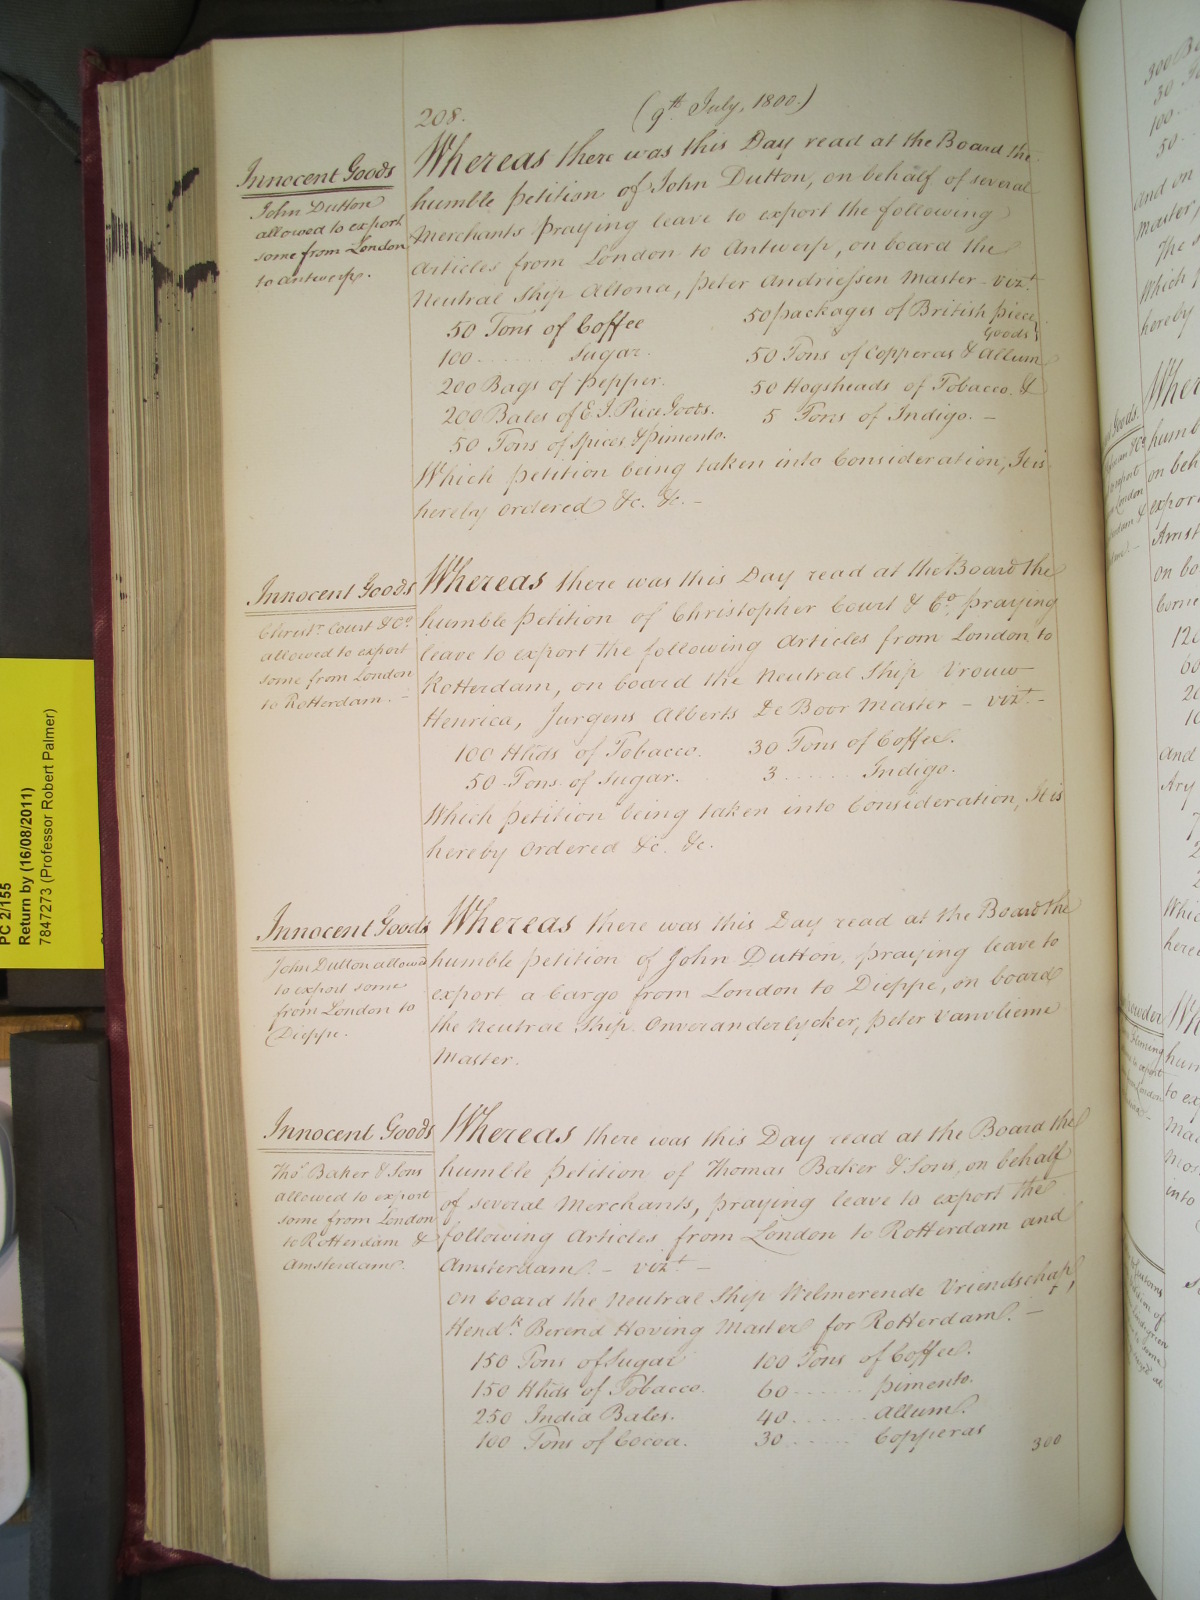 208.
(9th July, 1800.)
Innocent Goods
John Dutton
allowed to export
some from London
to Antwerp.
Whereas there was this Day read at the Board the
humble Petition of John Dutton, on behalf of several
Merchants Praying leave to export the following
Articles from London to Antwerp, on board the
Neutral Ship Altona, Peter Andriessen Master - vizt.
50 Tons of Coffee
100 ........ Sugar.
200 Bags of Pepper.
200 Bales of E. I. Piece Goods.
50 Tons of Spices & Pimento.
50 packages of British Piece
Goods}
50 Tons of Copperas & Allum
50 Hogsheads of Tobacco. &
5 Tons of Indigo. -
Which Petition being taken into Consideration, It is
hereby Ordered &c. &c. -
Innocent Goods
Christr. Court & Co.
allowed to export
some from London
to Rotterdam. -
Whereas there was this Day read at the Board the
humble Petition of Christopher Court & Co. praying
leave to export the following Articles from London to
Rotterdam, on board the Neutral Ship Vrouw
Henrica, Jurgens Alberts De Boor Master - vizt. -
100 Hhds of Tobacco.
50 Tons of Sugar.
30 Tons of Coffee.
3 ........ Indigo.
Which Petition being taken into Consideration, It is
hereby Ordered &c. &c.
Innocent Goods
John Dutton allowed
to export some
from London to
Dieppe.
Whereas there was this Day read at the Board the
humble Petition of John Dutton, praying leave to
export a Cargo from London to Dieppe, on board
the Neutral Ship Onveranderlycker, Peter Vanvlieme
Master.
Innocent Goods
Thos. Baker & Sons
allowed to export
some from London
to Rotterdam &
Amsterdam.
Whereas there was this Day read at the Board the
humble Petition of Thomas Baker & Sons, on behalf
of several Merchants, praying leave to export the
following Articles from London to Rotterdam and
Amsterdam. - vizt. -
on board the Neutral Ship Welmenende Vriendschap,
Hendk. Berend Hoving Master for Rotterdam. -
150 Tons of Sugar
150 Hhds of Tobacco.
250 India Bales.
100 Tons of Cocoa.
100 Tons of Coffee.
60 ........ Pimento.
40 ........ Allum.
30 ........ Copperas
300
PC 2/155
Return by (16/08/2011)
7847273 (Professor Robert Palmer)